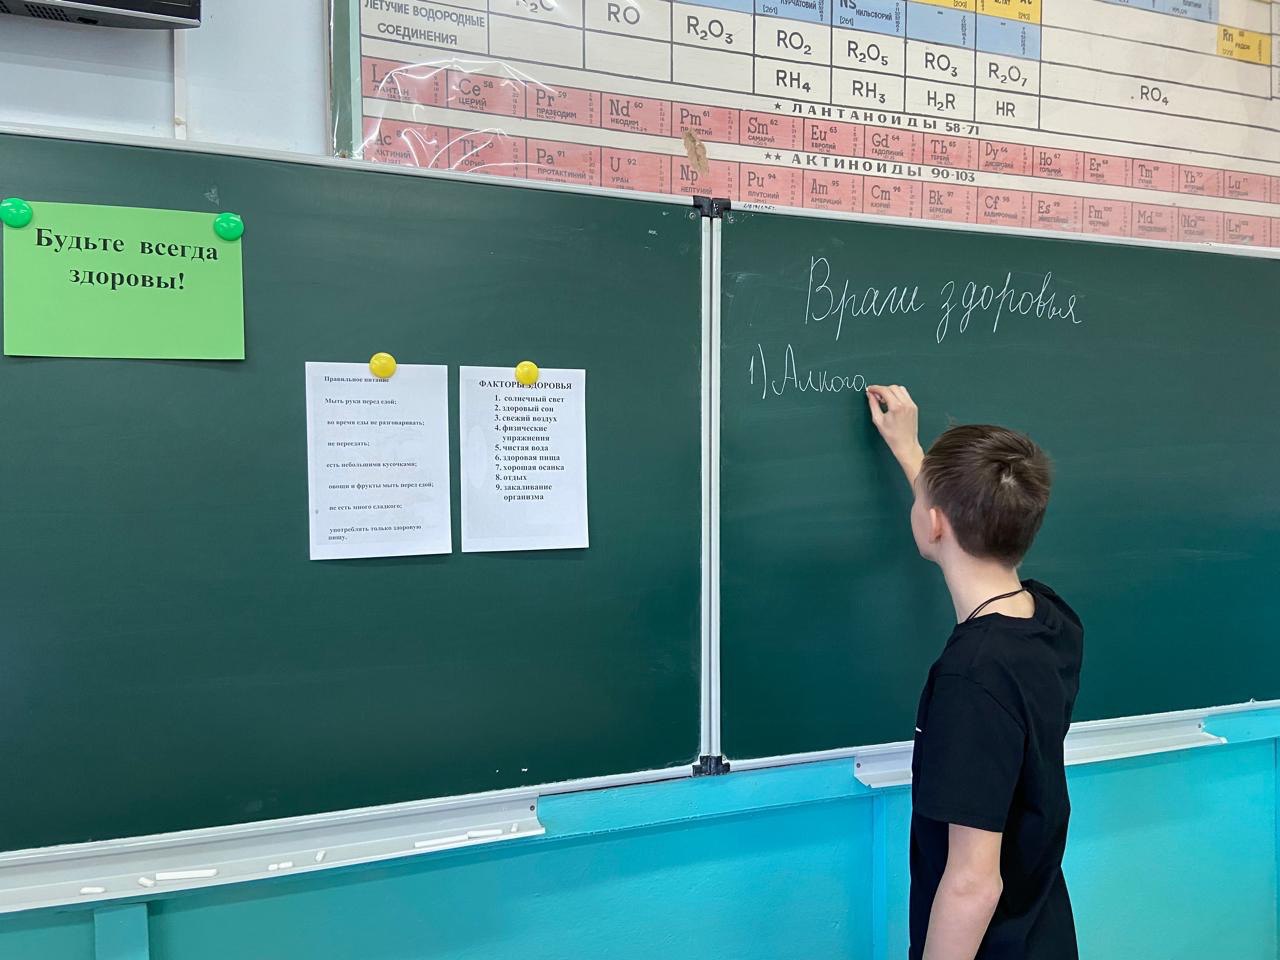 ЛЕТУЧИЕ ВОДОРОДНЫЕ
СОЕДИНЕНИЯ
RO
R₂O₃
RO₂
R₂O₅
RO₃
R₂O₇
RO₄
RH₄
RH₃
H₂R
HR
★ ЛАНТАНОИДЫ 58-71
Ce 58 ЦЕРИЙ
Pr 59 ПРАЗЕОДИМ
Nd 60 НЕОДИМ
Pm 61
Sm 62 САМАРИЙ
Eu 63 ЕВРОПИЙ
Gd 64 ГАДОЛИНИЙ
Tb 65 ТЕРБИЙ
Dy 66
Ho 67
Er 68
Tm
Yb
Lu
★★ АКТИНОИДЫ 90-103
Ac АКТИНИЙ
Th ТОРИЙ
Pa 91 ПРОТАКТИНИЙ
U 92 УРАН
Np НЕПТУНИЙ
Pu 94 ПЛУТОНИЙ
Am 95 АМЕРИЦИЙ
Cm 96 КЮРИЙ
Bk 97 БЕРКЛИЙ
Cf 98 КАЛИФОРНИЙ
Es 99
Fm
Md
Будьте всегда
здоровы!
Правильное питание
Мыть руки перед едой;
во время еды не разговаривать;
не переедать;
есть небольшими кусочками;
овощи и фрукты мыть перед едой;
не есть много сладкого;
употреблять только здоровую
пищу.
ФАКТОРЫ ЗДОРОВЬЯ
1. солнечный свет
2. здоровый сон
3. свежий воздух
4. физические
упражнения
5. чистая вода
6. здоровая пища
7. хорошая осанка
8. отдых
9. закаливание
организма
Враги здоровья
1) Алкого